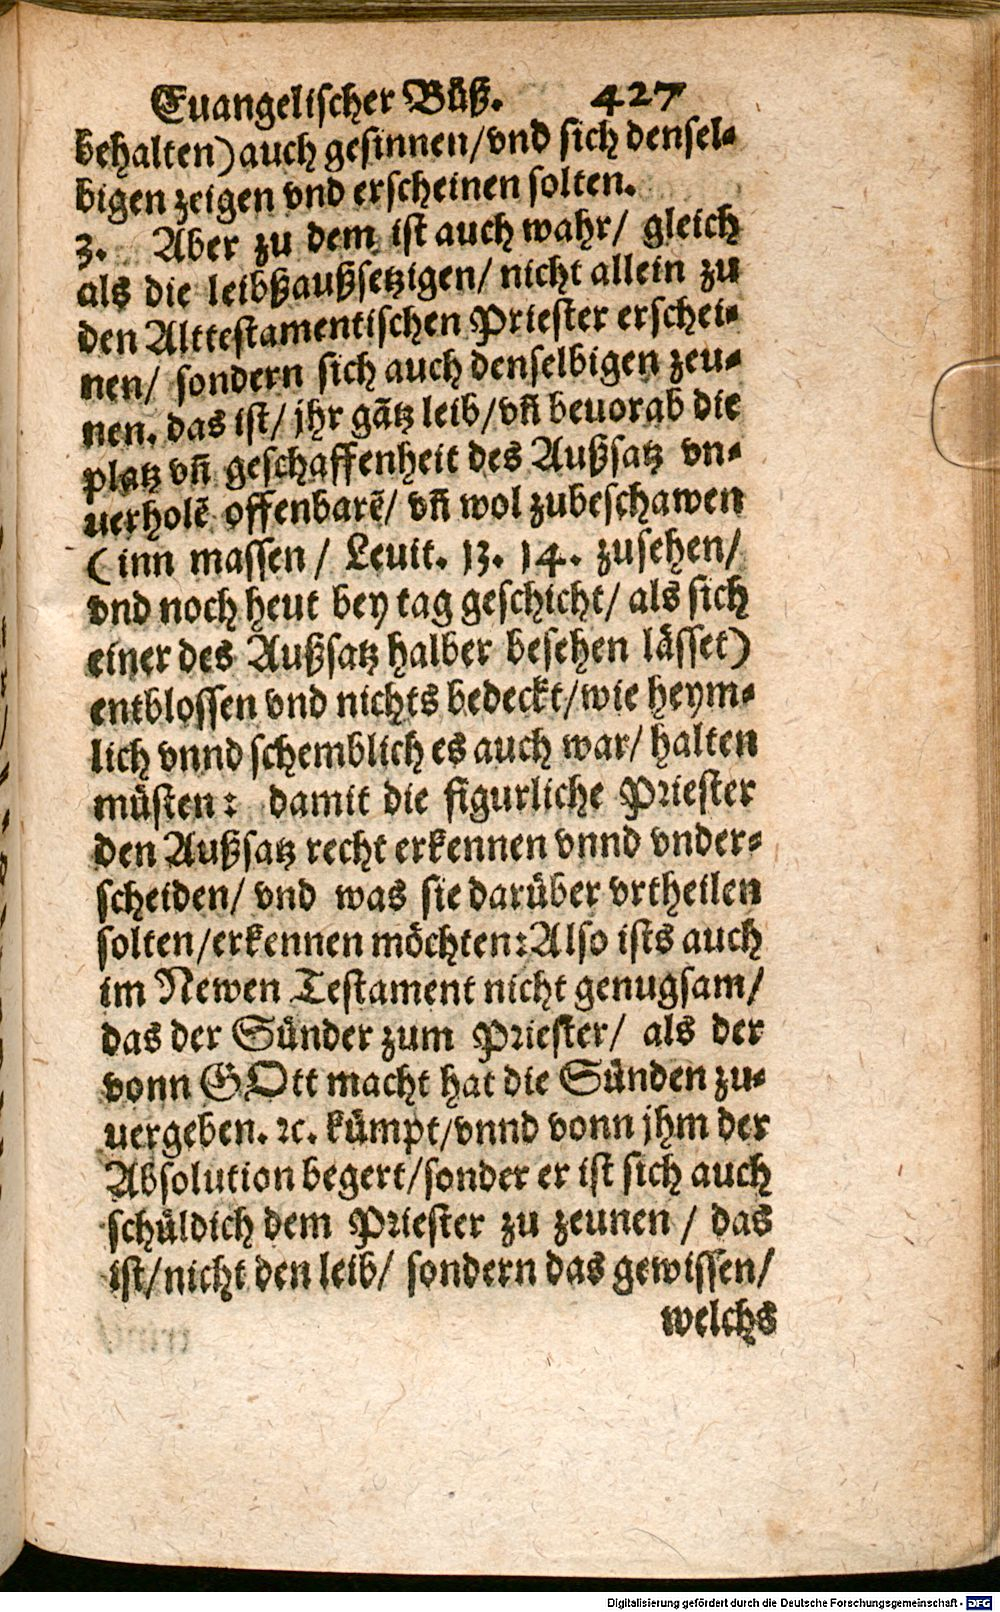 Euangelischer Büß. 427
behalten) auch gesinnen/vnd sich densel-
bigen zeigen vnd erscheinen solten.
3. Aber zu dem ist auch wahr/ gleich
als die leibßaußsetzigen/ nicht allein zu
den Alttestamentischen Priester erschei-
nen/ sondern sich auch denselbigen zeu-
nen. das ist/ jhr gãtz leib/vñ beuorab die
platz vñ geschaffenheit des Außsatz vn-
uerholẽ offenbarẽ/ vñ wol zubeschawen
(inn massen / Leuit. 13. 14. zusehen/
vnd noch heut bey tag geschicht/ als sich
einer des Außsatz halber besehen lässet)
entblossen vnd nichts bedeckt/wie heym-
lich vnnd schemblich es auch war/ halten
müsten: damit die figurliche Priester
den Außsatz recht erkennen vnnd vnder-
scheiden/ vnd was sie darüber vrtheilen
solten/erkennen möchten: Also ists auch
im Newen Testament nicht genugsam/
das der Sünder zum Priester/ als der
vonn GOtt macht hat die Sünden zu-
uergeben. ꝛc. kümpt/vnnd vonn jhm der
Absolution begert/sonder er ist sich auch
schüldich dem Priester zu zeunen / das
ist/nicht den leib/ sondern das gewissen/
welchs
Digitalisierung gefördert durch die Deutsche Forschungsgemeinschaft - DFG